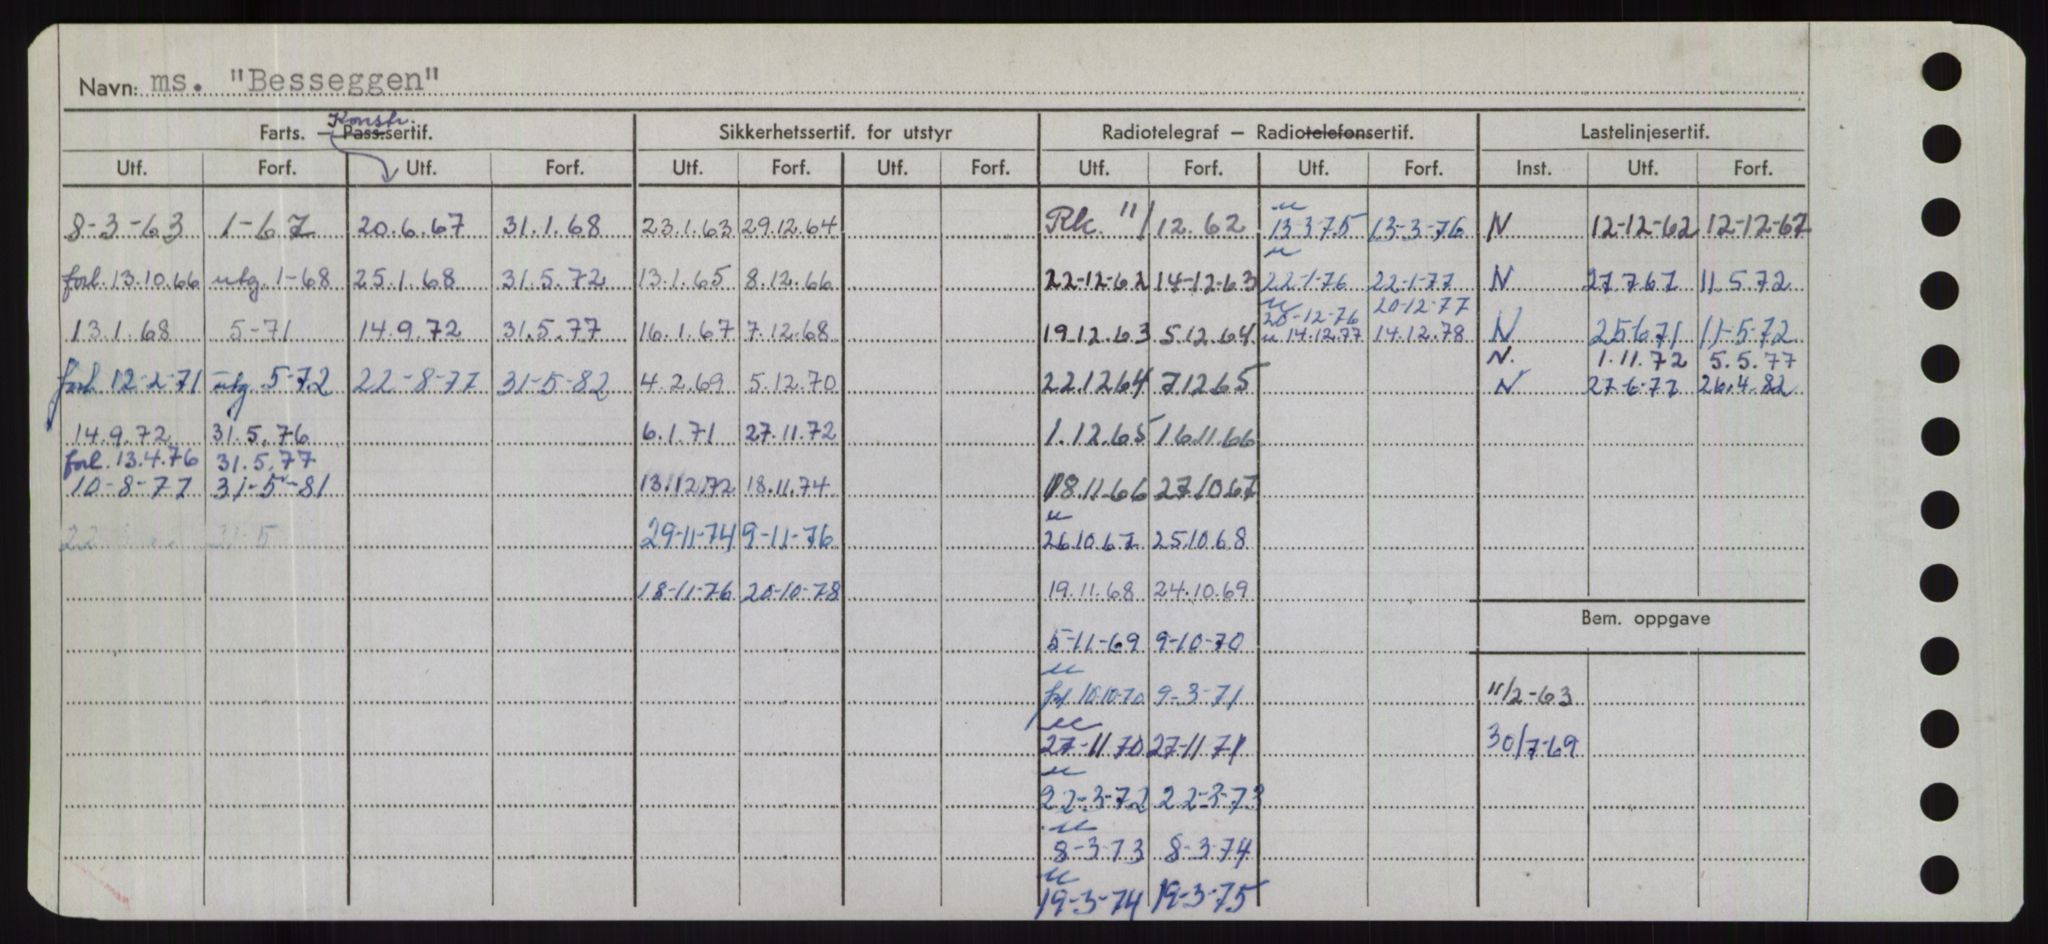 Navn: ms. "Besseggen"
Konstr.
Farts. – Pass.sertif. Sikkerhetssertif. for utstyr Radiotelegraf – Radiotelefonsertif. Lastelinjesertif.
Utf. Forf. Utf. Forf. Utf. Forf. Utf. Forf. Utf. Forf. Utf. Forf. Inst. Utf. Forf.
8-3-63 1-67 20.6.67 31.1.68 23.1.63 29.12.64 Rk 11/12.62 u 13-3-75 13-3-76 N 12-12-62 12-12-67
forl. 13.10.66 utg. 1-68 25.1.68 31.5.72 13.1.65 8.12.66 22-12-62 14-12-63 u 22-1-76 22-1-77 N 27.7.67 11.5.72
u 20-12-76 20-12-77
13.1.68 5-71 14.9.72 31.5.77 16.1.67 7.12.68 19.12.63 5.12.64 u 14.12.77 14.12.78 N 25.6.71 11-5-72
N. 1.11.72 5.5.77
forl. 12-2-71 utg. 5-72 22-8-77 31-5-82 4.2.69 5.12.70 22.12.64 7.12.65 N 27-6-77 26.4.82
14.9.72 31.5.76 6.1.71 27.11.72 1.12.65 16.11.66
forl. 13.4.76 31.5.77
10-8-77 31-5-81 13.12.72 18.11.74 18.11.66 27.10.67
22 31-5 29-11-74 9-11-76 u 26.10.67 25.10.68
18-11-76 20-10-78 19.11.68 24.10.69
Bem. oppgave
5-11-69 9-10-70
u forl 10-10-70 9-3-71 11/2-63
u 27-11-70 27-11-71 30/7-69
u 22-3-72 22-3-73
u 8-3-73 8-3-74
u 19-3-74 19-3-75